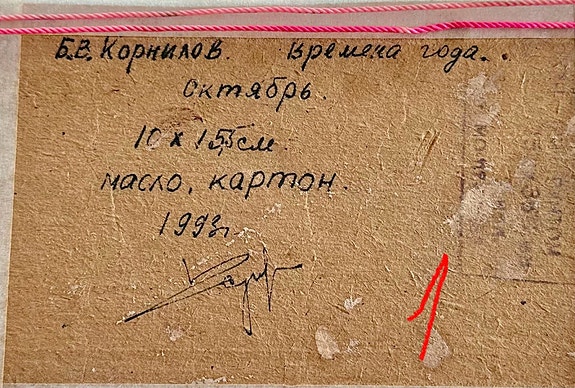 Б.В. Корнилов. Времена года..
Октябрь.
10 х 15,5 см.
масло, картон.
1993г.
1